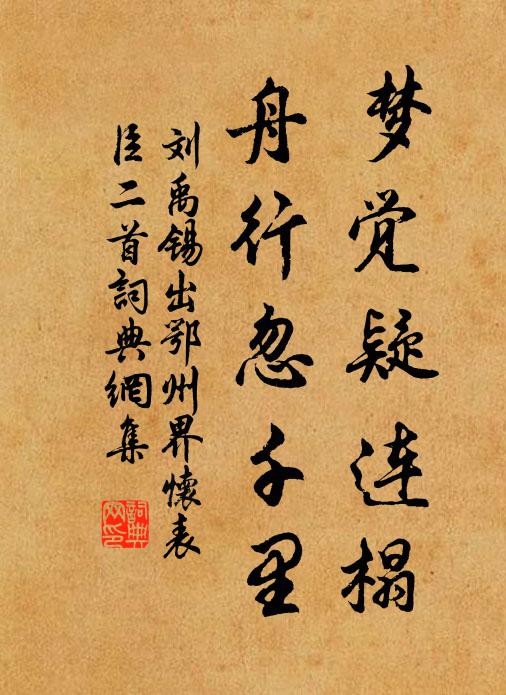 梦觉疑连榻
舟行忽千里
刘禹锡出鄂州界懷表
臣二首詞典網集
詞典网印